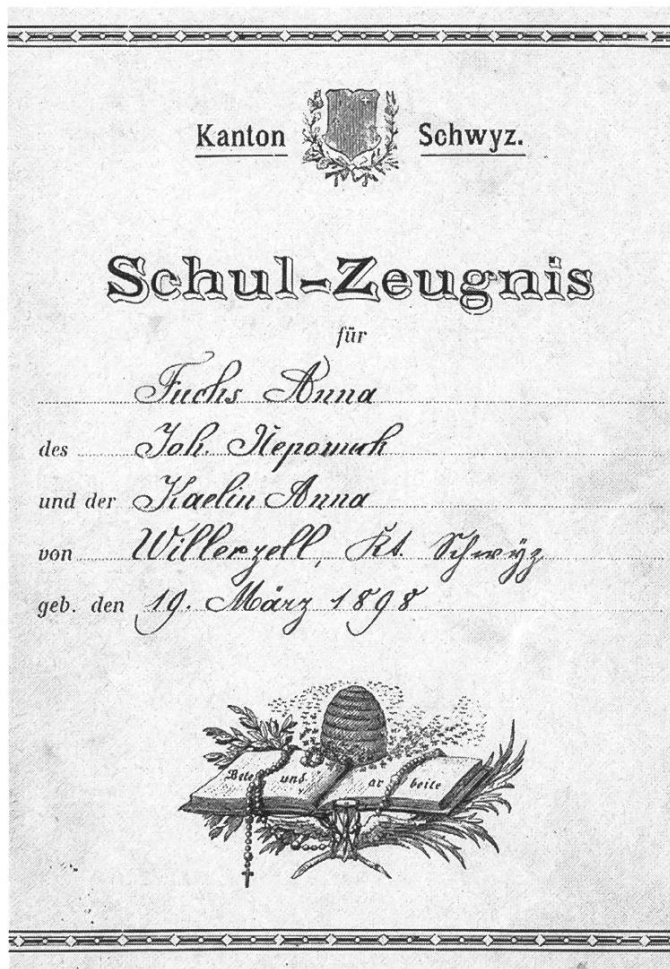 Kanton Schwyz.
Schul-Zeugnis
für
Fuchs Anna
des Joh. Nepomuk
und der Kaelin Anna
von Willerzell, Kt. Schwÿz
geb. den 19. März 1898
Bete und arbeite